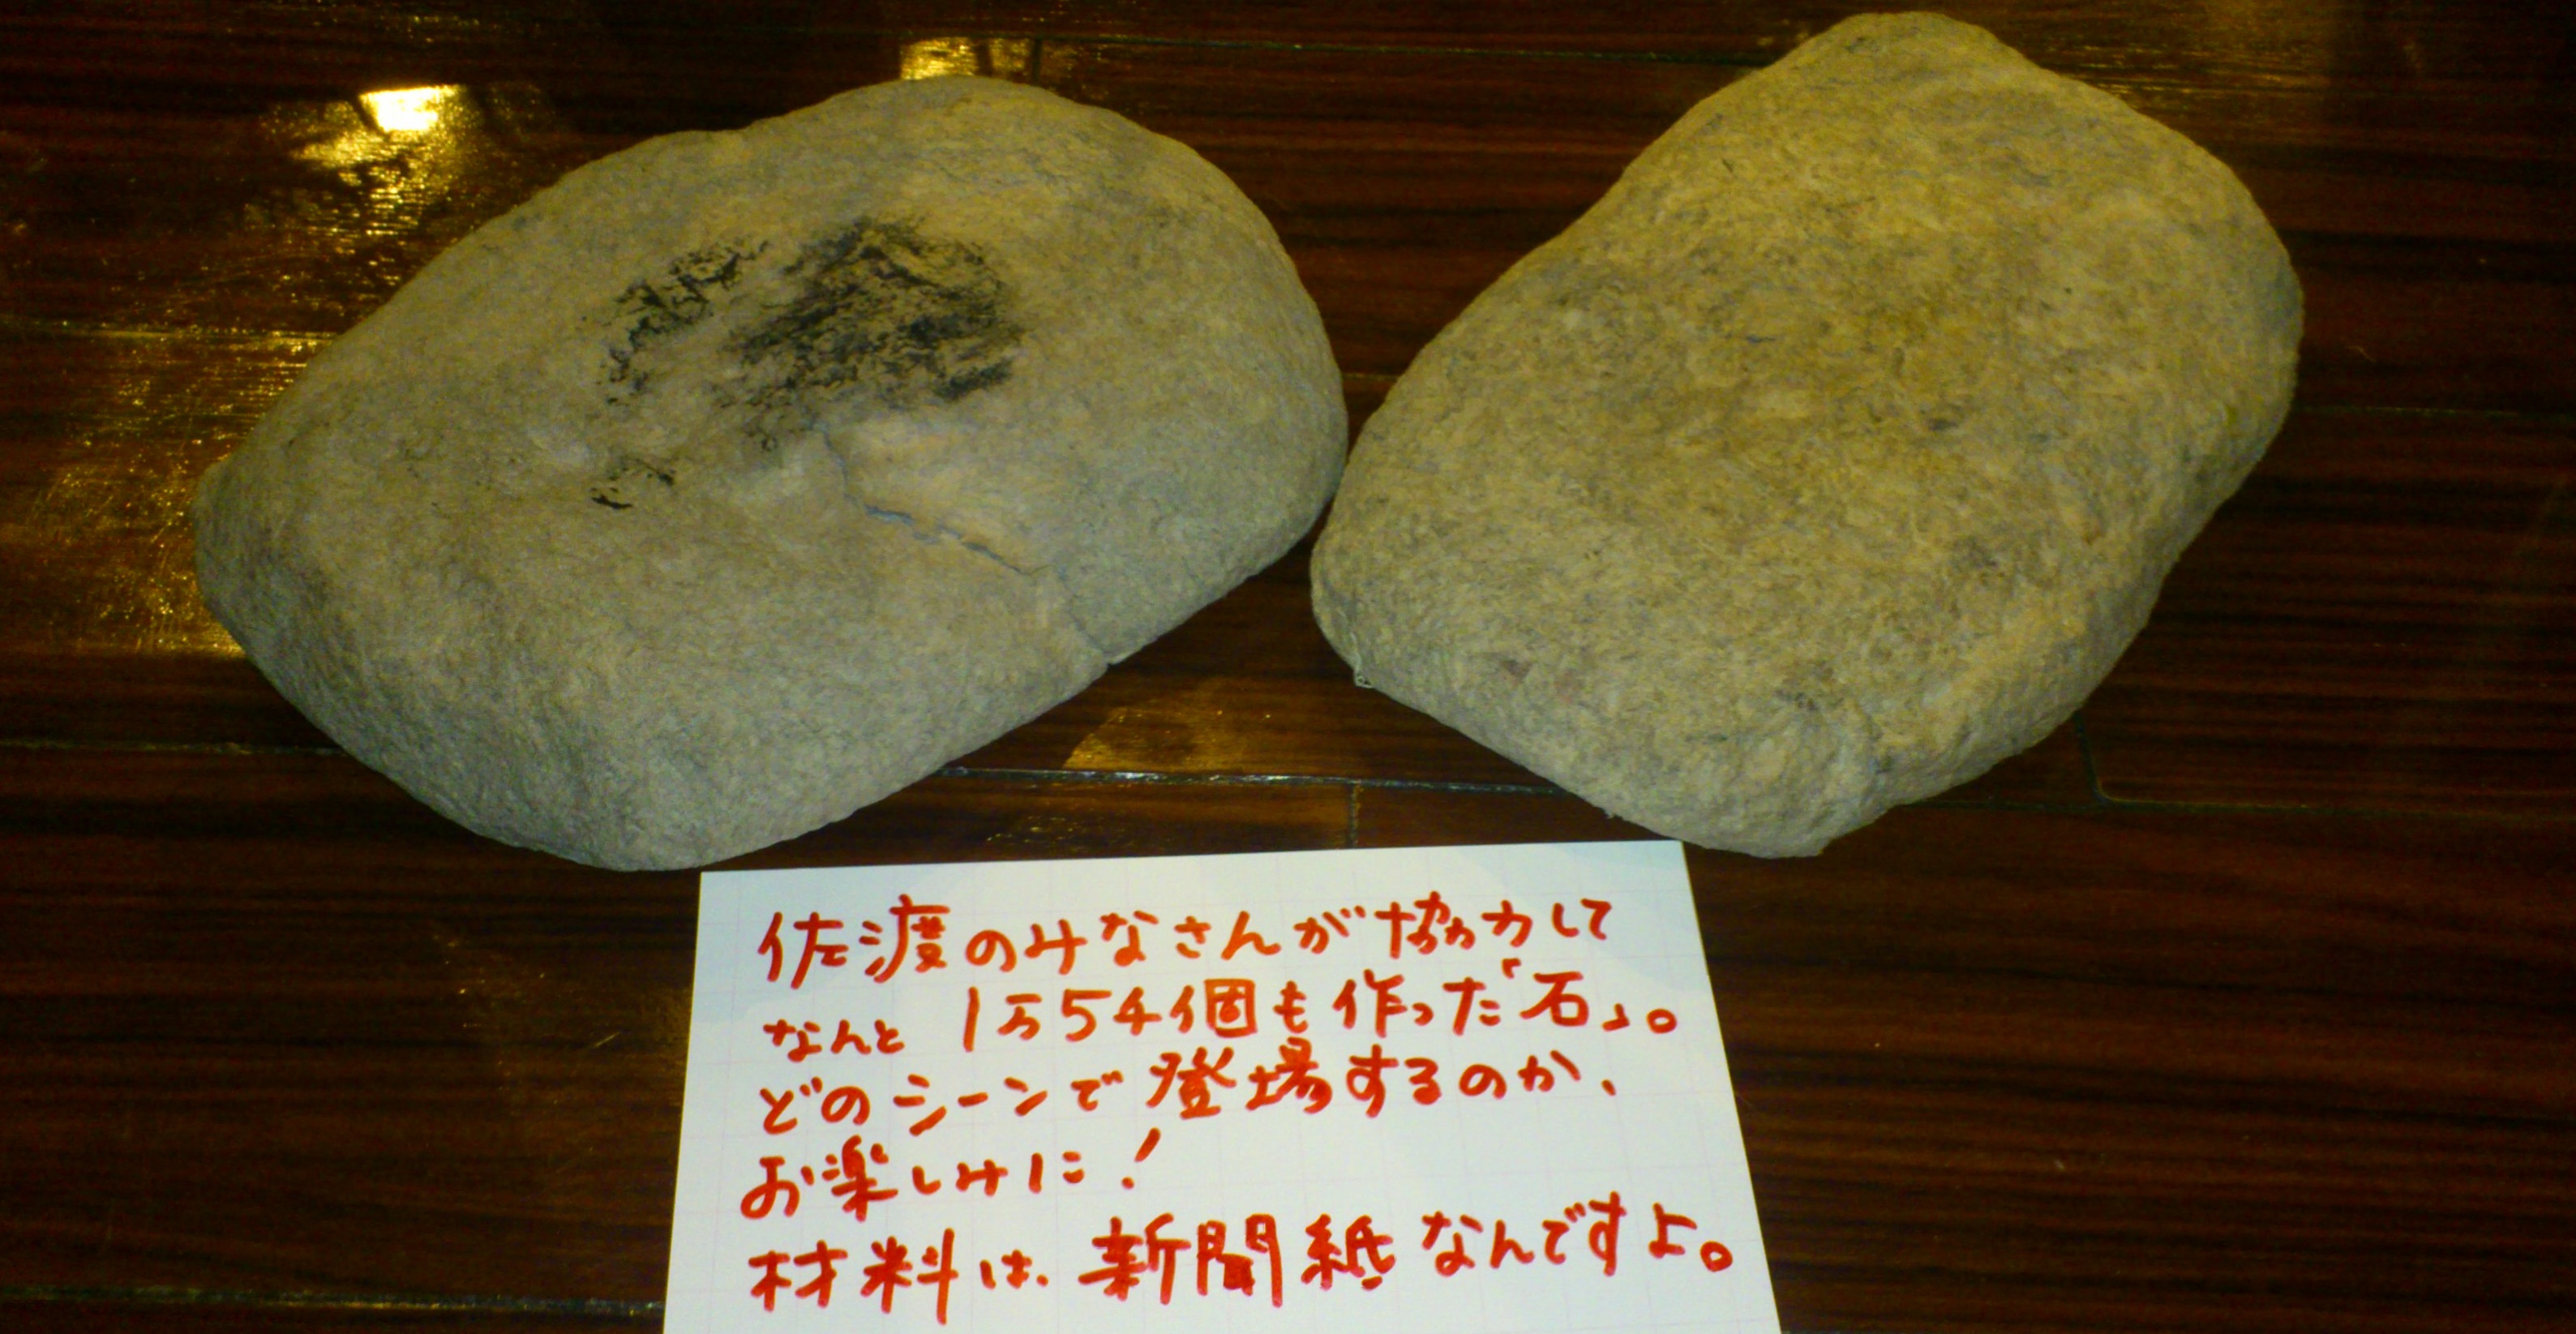 佐渡のみなさんが協力して
なんと 1万54個も作った「石」。
どのシーンで登場するのか、
お楽しみに!
材料は、新聞紙なんですよ。